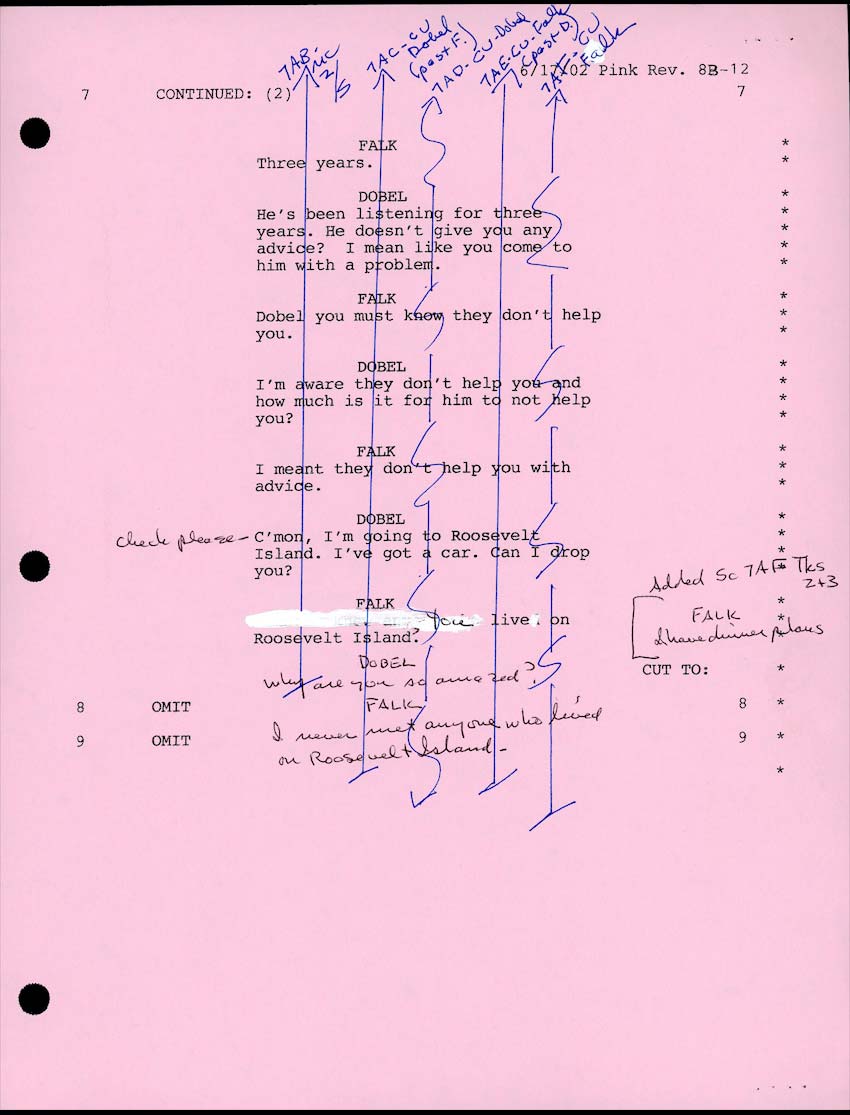 7AB-
2/5
7AC-CU
Dobel
(past F.)
7AD-CU-Dobel
7AE-CU-Falk
(past D.)
7AF-CU
Falk
6/17/02 Pink Rev. 8B-12
7 CONTINUED: (2) 7
FALK *
Three years. *
DOBEL *
He's been listening for three *
years. He doesn't give you any *
advice? I mean like you come to *
him with a problem. *
FALK *
Dobel you must know they don't help *
you. *
DOBEL *
I'm aware they don't help you and *
how much is it for him to not help *
you? *
FALK *
I meant they don't help you with *
advice. *
DOBEL *
check please - C'mon, I'm going to Roosevelt *
Island. I've got a car. Can I drop *
you? *
Added Sc 7AF Tks
2+3
FALK *
You live on *
Roosevelt Island? *
FALK
I have dinner plans
DOBEL
Why are you so amazed?
CUT TO: *
8 OMIT 8 *
FALK
I never met anyone who lived
9 OMIT 9 *
on Roosevelt Island-
*